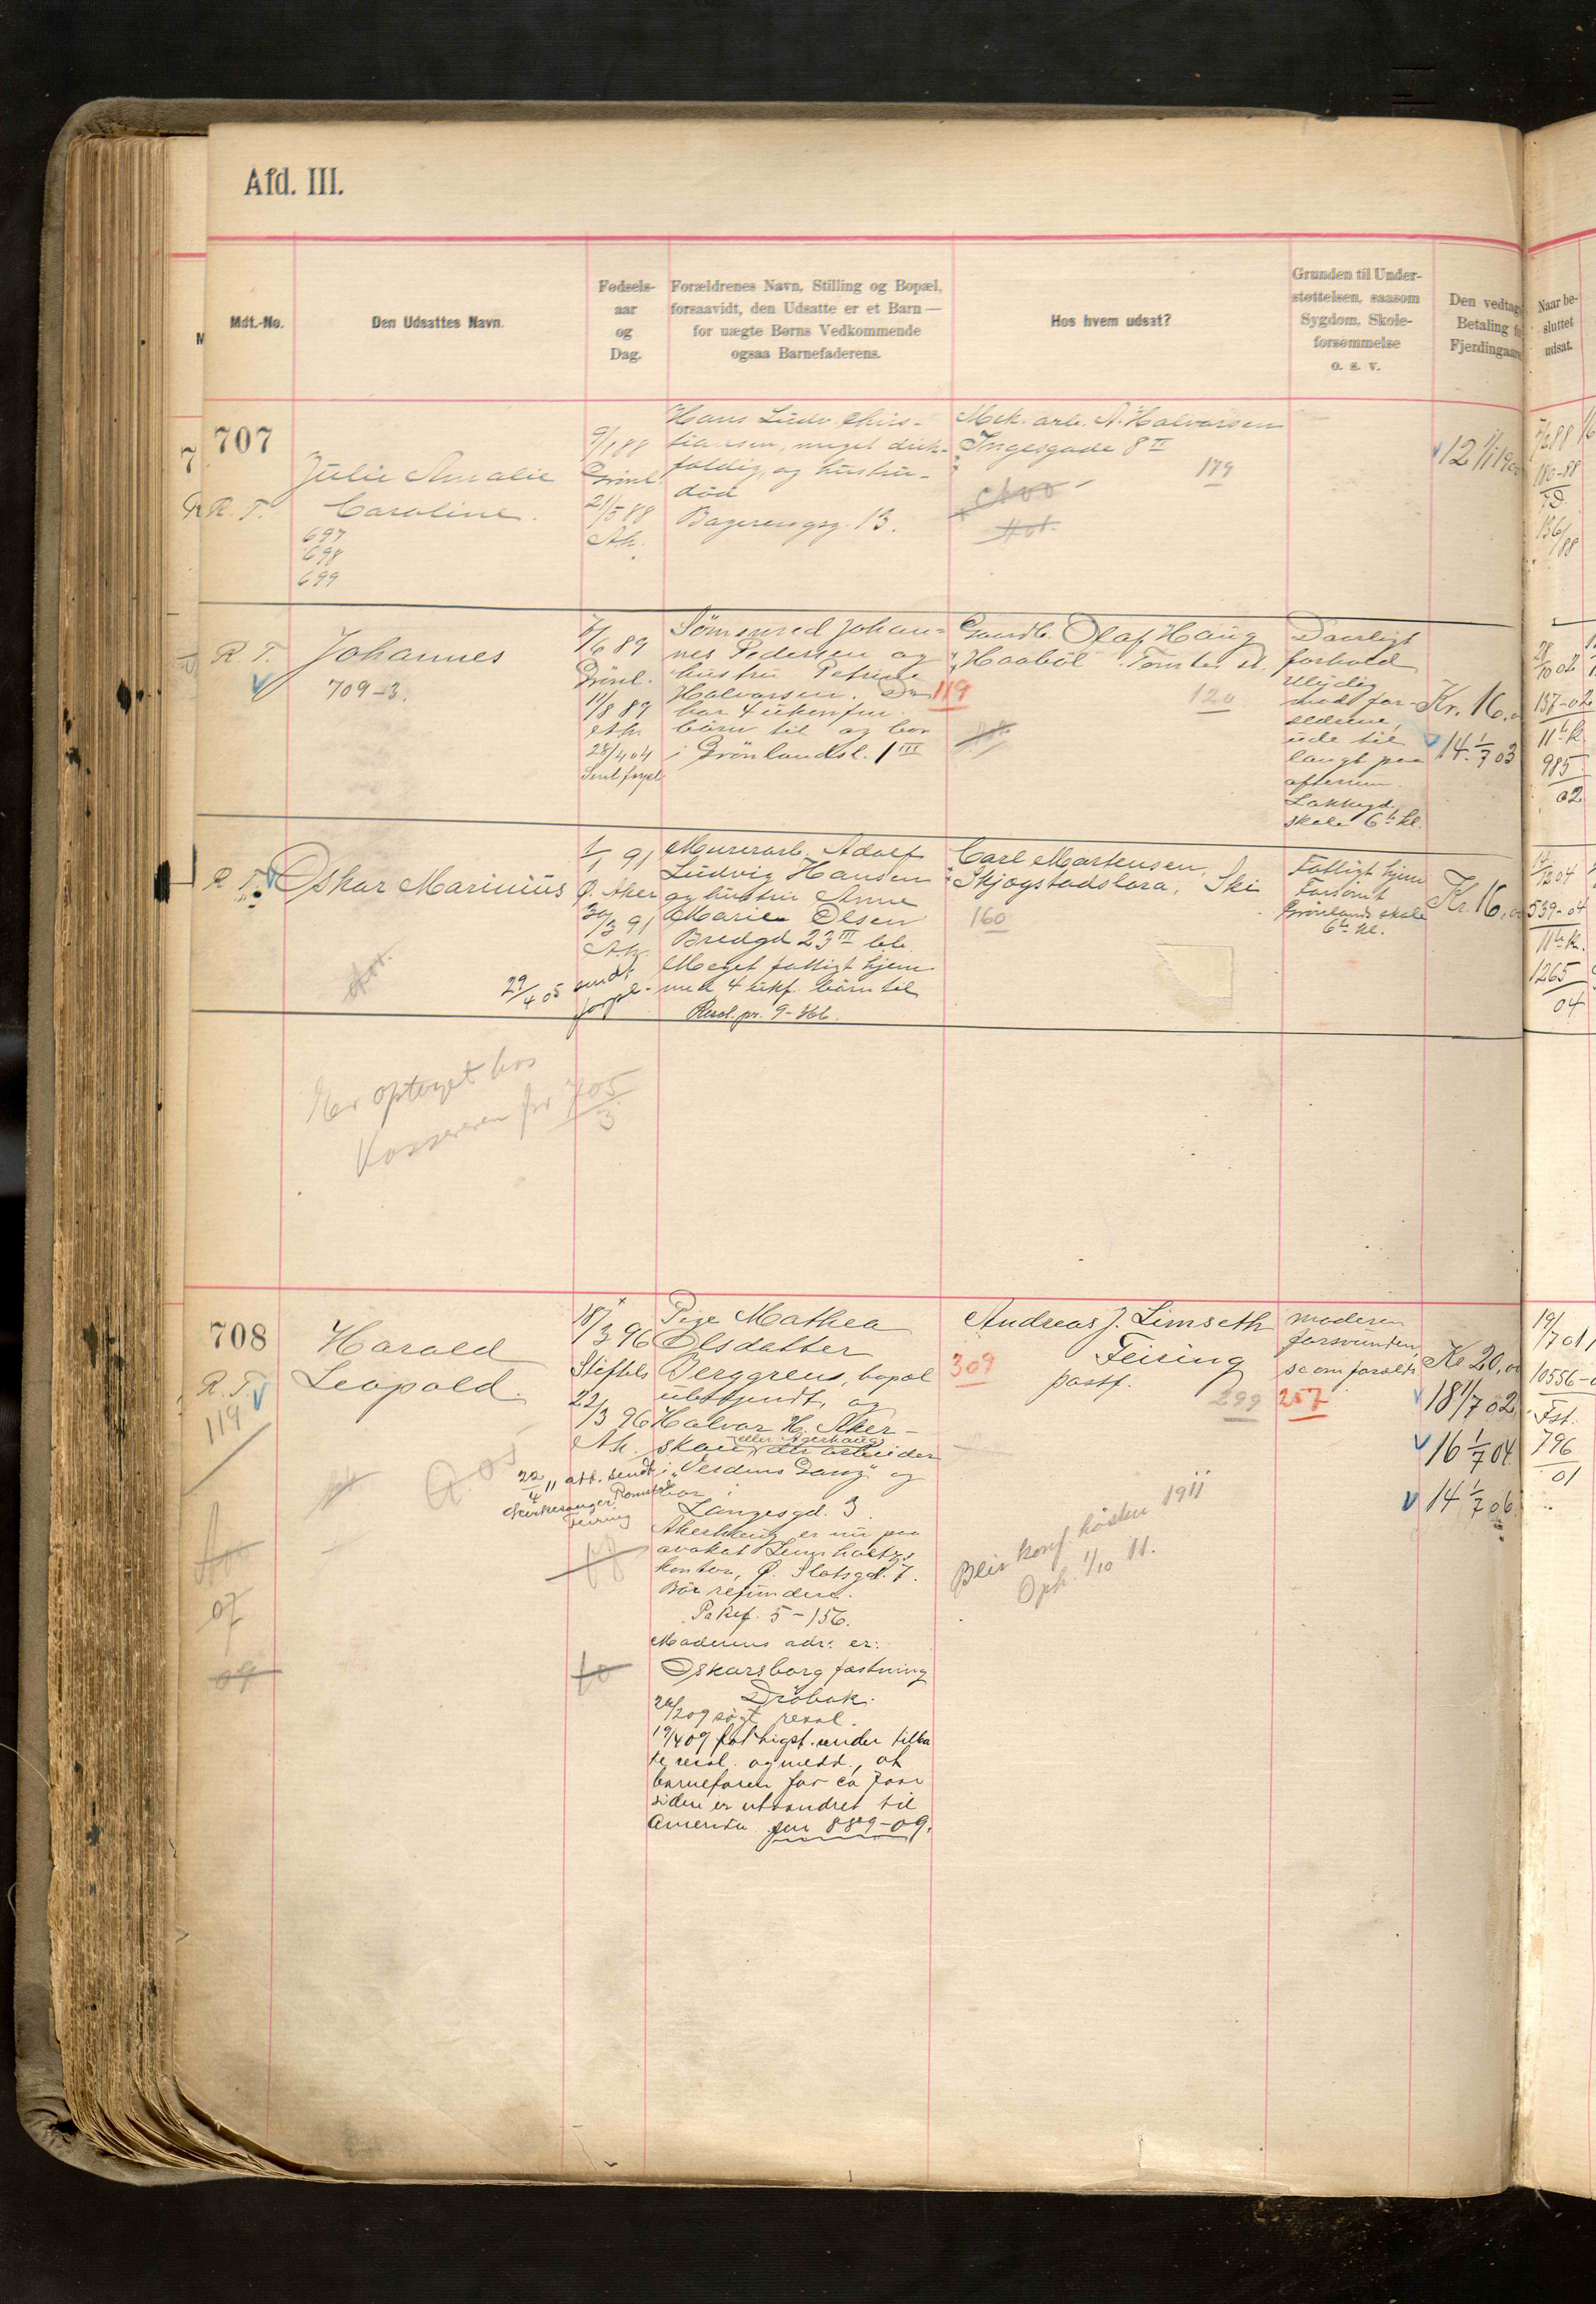 Afd. III.
Mdt.-No.
Den Udsattes Navn.
Fødsels-
aar
og
Dag.
Forældrenes Navn, Stilling og Bopæl,
forsaavidt, den Udsatte er et Barn —
for uægte Børns Vedkommende
ogsaa Barnefaderens.
Hos hvem udsat?
Grunden til Under-
støttelsen, saasom
Sygdom, Skole-
forsømmelse
o. s. v.
Den vedtag
Betaling fo
Fjerdingaar
Naar be-
sluttet
udsat.
707
R. T.
Julie Amalie
Caroline.
697
698
699
9/1 88
Grönl.
21/5 88
Ak.
Hans Ludv. Chris-
tiansen, meget drik-
fældig, og hustru -
död
Bagerengsg. 13.
Mek. arb. A. Halvorsen
Ingesgade 8 II
179
12 1/1 190
R. T.
Johannes
709-3.
4/6 89
Grönl.
11/8 89
Ak.
28/4 04
Senl forpl.
Sömsmed Johan-
nes Pedersen og
hustru Petrine
Halvorsen. De
har 4 ukonfirm.
börn til og bor
i Grönlandsl. 1 III
119
Gaardb. Olaf Haug
Haaböl Tomter st.
120
Daarligt
forhold
Ulydig
mod for-
ældrene,
ude til
langt paa
aftenen.
Lakkegd.
skole 6te kl.
Kr. 16.
14. 1/7 03
28/10 02
137-02
11te k.
985
02
R. T.
Oskar Marinius
1/1 91
Ö. Aker
30/3 91
Ak.
29/4 05 sendt
forpl.
Murerarb. Adolf
Ludvig Hansen
og hustru Anne
Marie Olsen
Bredgd 23 III
Meget fattigt hjem
med 4 ukf. börn til
Resol. pr. 9-366.
Carl Martensen,
Skjogstadslora, Ski
160
Fattigt hjem
Forsömt
Grönlands skole
6te kl.
Kr. 16,
539-04
11te k.
1265
04
Er optaget hos
Kassereren for 705
3
708
R. T.
119
07
09
Harald
Leopold.
18/3 96
Stiftels
22/3 96
Ak.
Pige Mathea
Olsdatter
Berggrens, bopæl
ubekjendt, og
Halvor H. Aker-
skou eller Agerhaug
der arbeider
i „Verdens Gang" og
bor i
Langesgd. 3
Akerhaug er nu paa
kontor, Ö. Slotsgd. 7.
Bör refundere.
Pa Ref. 5-156.
Moderens adr. er:
Oskarsborg fæstning
Dröbak.
24/2 09 søgt resol.
19/4 09 fattigst. sender tilba
ke resol. og medd., at
barnefaren for ca 7 aar
siden er utvandret til
Amerika jnr 889-09.
22/4 11 att. sendt
Kirkesanger Romsdal
Feiring
Andreas J. Limseth
Feiring
postf.
309
299
257
Blir konf. hösten 1911
Oph. 1/10 11.
moderen
forsvunden,
se om foræld.
Kr 20,
18 1/7 02
16 1/7 04
14 1/7 06
19/7 01
10556-0
Fst.
796
01